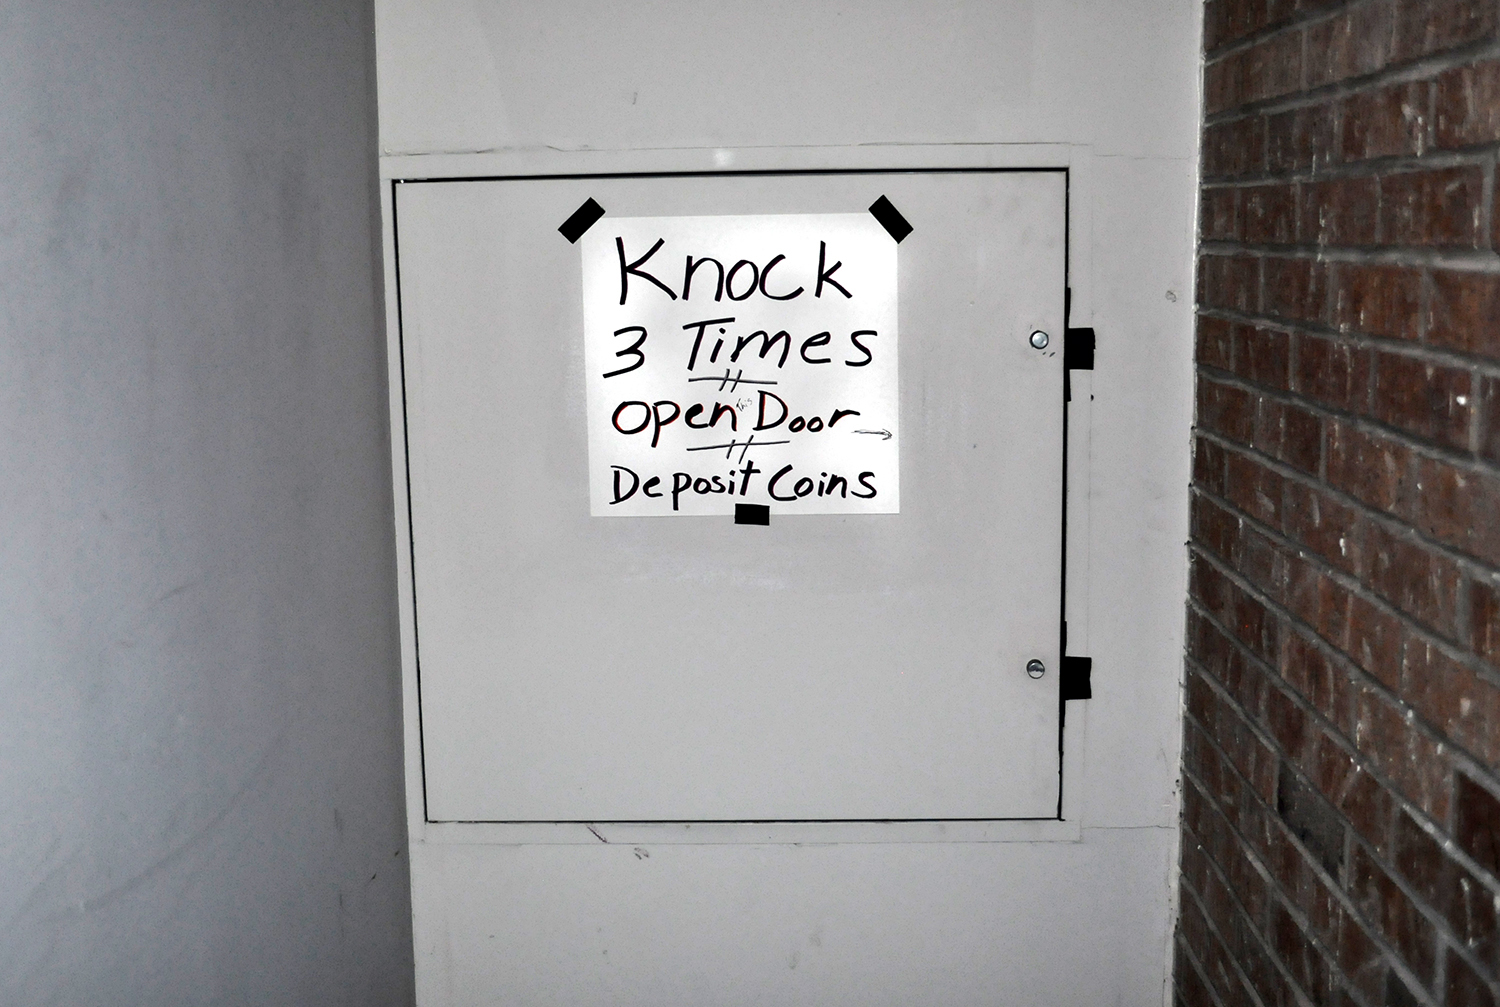 Knock
3 Times
open this Door →
Deposit Coins